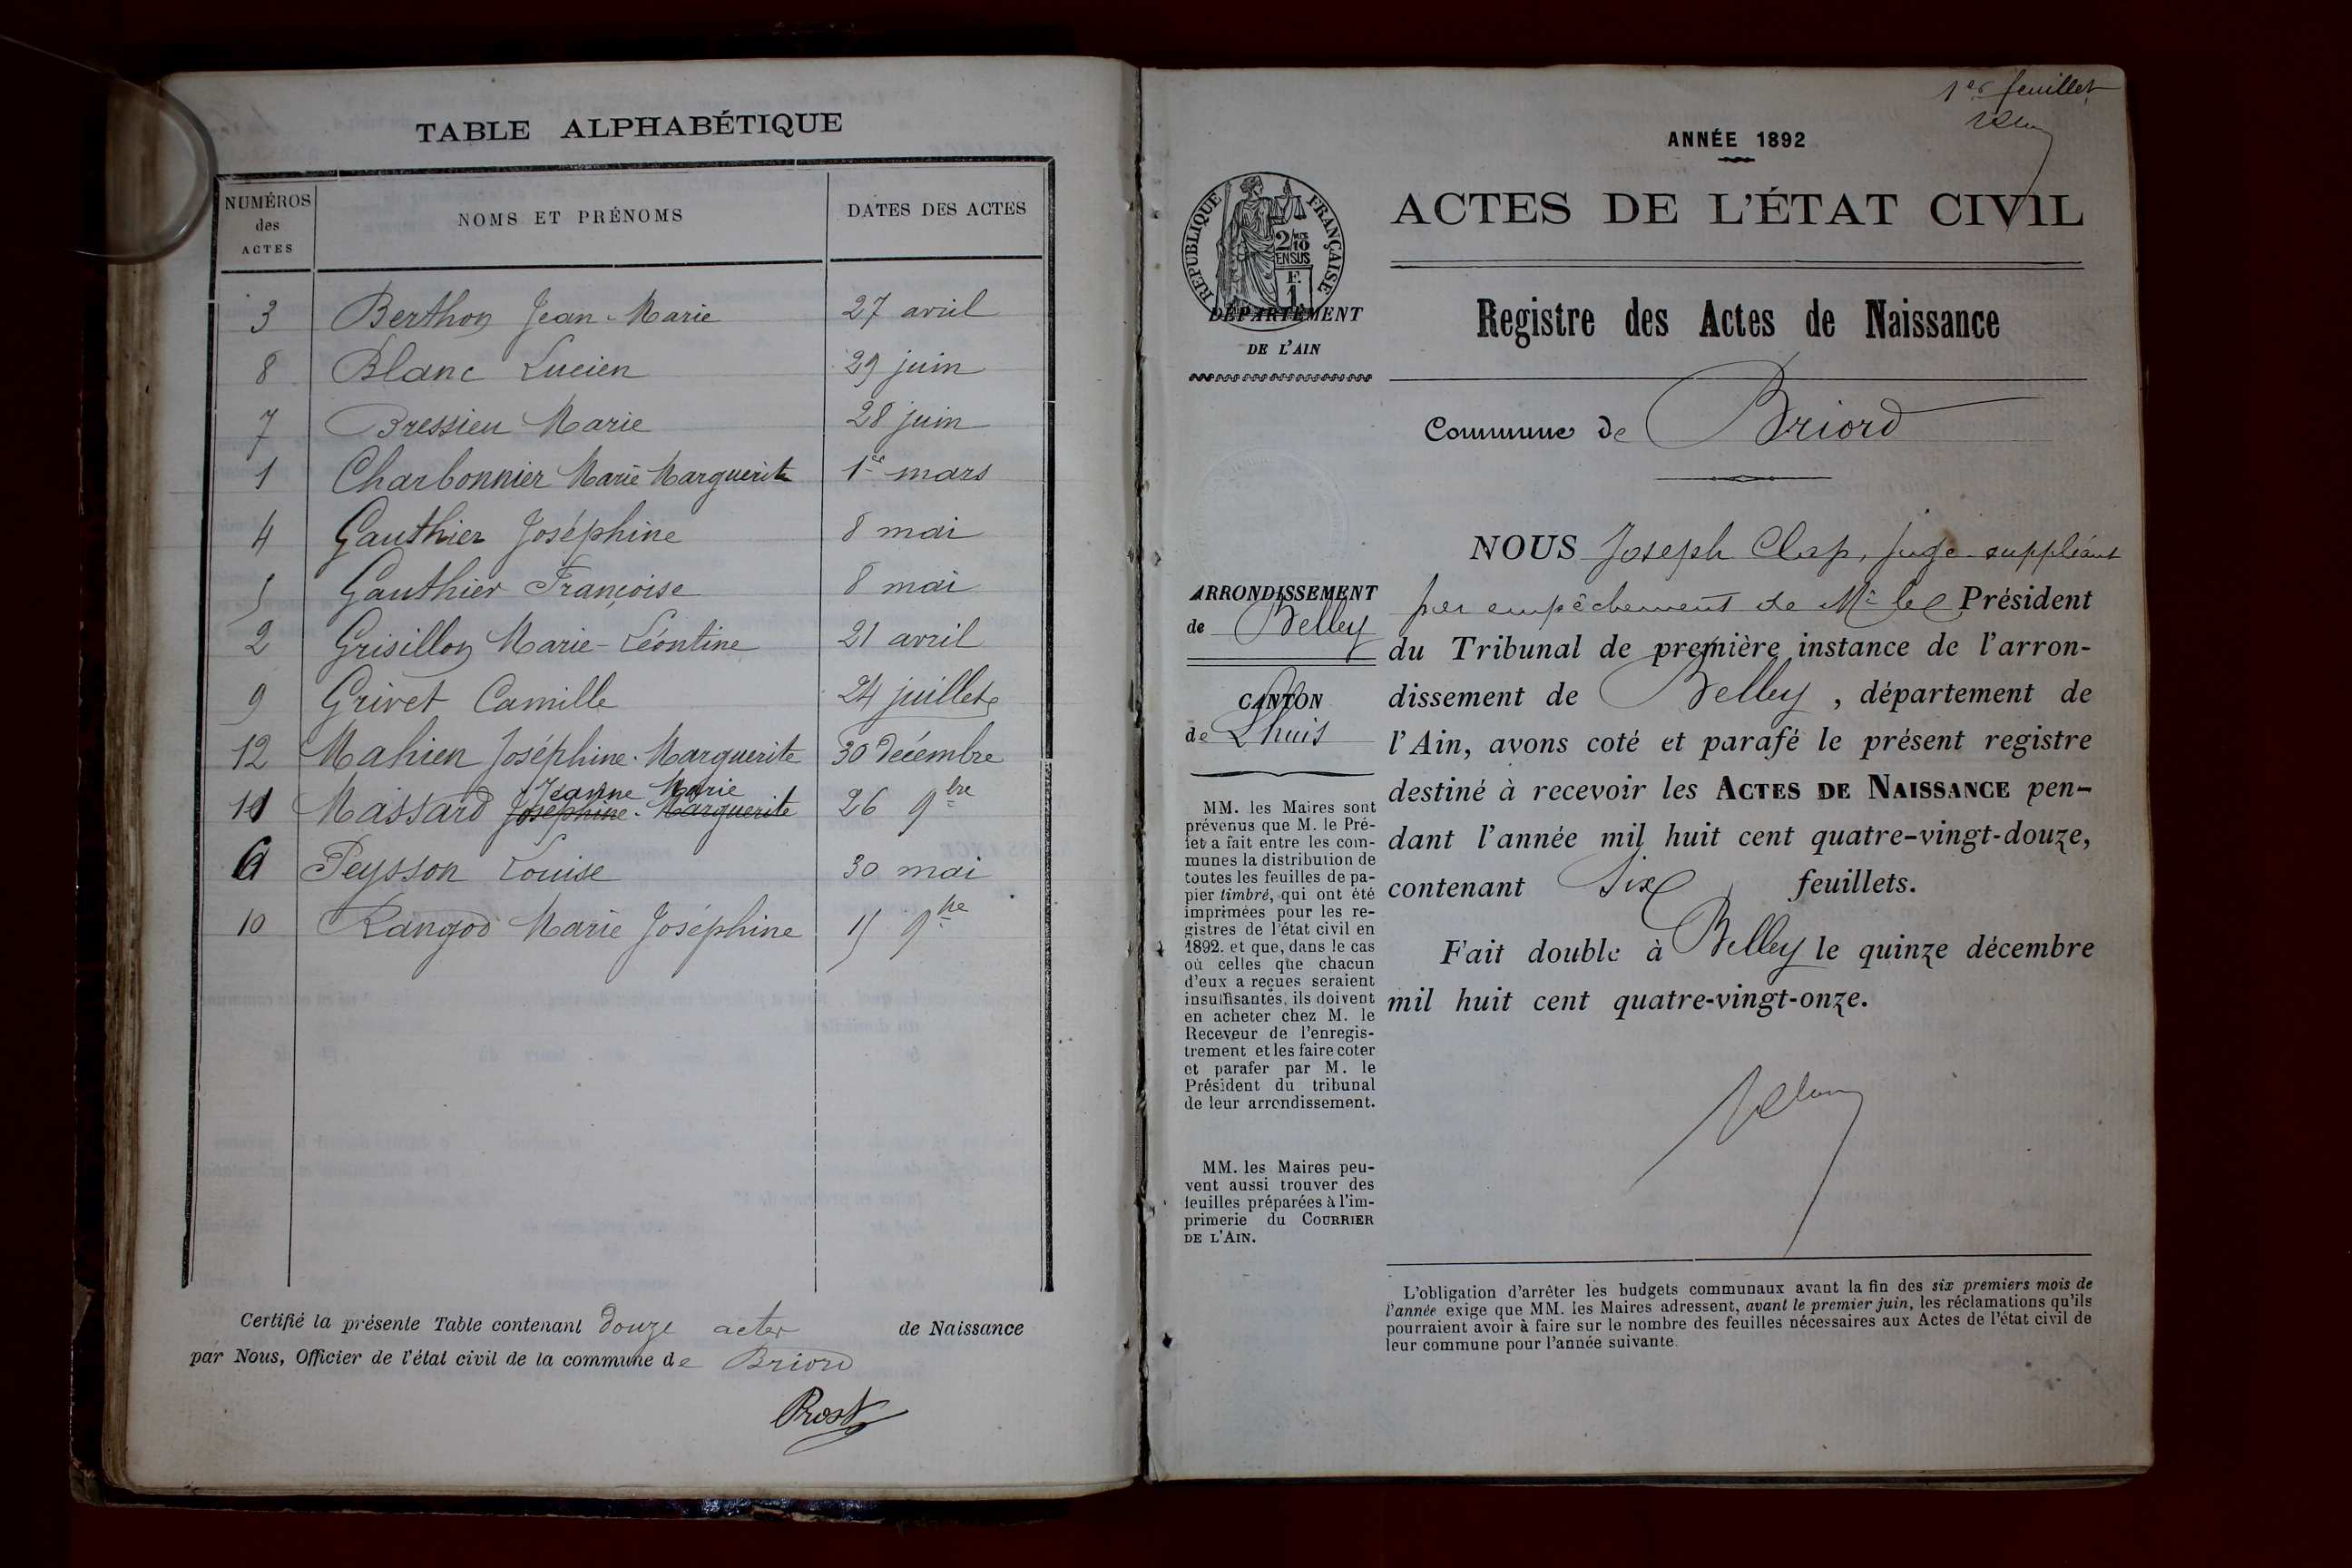 TABLE ALPHABÉTIQUE
NUMÉROS des ACTES
NOMS ET PRÉNOMS
DATES DES ACTES
3 Berthon Jean-Marie 27 avril
8 Blanc Lucien 29 juin
7 Bressieu Marie 28 juin
1 Charbonnier Marie Marguerite 1er mars
4 Gauthier Joséphine 8 mai
5 Gauthier Françoise 8 mai
2 Grisillon Marie-Léontine 21 avril
9 Grivet Camille 24 juillet
12 Mahien Joséphine-Marguerite 30 Décembre
Jeanne Marie
11 Massard Joséphine-Marguerite 26 9bre
6 Peysson Louise 30 mai
10 Rangod Marie Joséphine 15 9bre
Certifié la présente Table contenant douze actes de Naissance
par Nous, Officier de l'état civil de la commune de Briord
Prost
1er feuillet
ANNÉE 1892
RÉPUBLIQUE FRANÇAISE
2/10
EN SUS
F.
1
ACTES DE L'ÉTAT CIVIL
DÉPARTEMENT
DE L'AIN
Registre des Actes de Naissance
Commune de Briord
ARRONDISSEMENT
de Belley
CANTON
de Lhuis
MM. les Maires sont
prévenus que M. le Pré-
fet a fait entre les com-
munes la distribution de
toutes les feuilles de pa-
pier timbré, qui ont été
imprimées pour les re-
gistres de l'état civil en
1892. et que, dans le cas
où celles que chacun
d'eux a reçues seraient
insuffisantes, ils doivent
en acheter chez M. le
Receveur de l'enregis-
trement et les faire coter
et parafer par M. le
Président du tribunal
de leur arrondissement.
MM. les Maires peu-
vent aussi trouver des
feuilles préparées à l'im-
primerie du COURRIER
DE L'AIN.
NOUS Joseph Clap, juge-suppléant
par empêchement de Mr le Président
du Tribunal de première instance de l'arron-
dissement de Belley, département de
l'Ain, avons coté et parafé le présent registre
destiné à recevoir les ACTES DE NAISSANCE pen-
dant l'année mil huit cent quatre-vingt-douze,
contenant Six feuillets.
Fait double à Belley le quinze décembre
mil huit cent quatre-vingt-onze.
L'obligation d'arrêter les budgets communaux avant la fin des six premiers mois de
l'année exige que MM. les Maires adressent, avant le premier juin, les réclamations qu'ils
pourraient avoir à faire sur le nombre des feuilles nécessaires aux Actes de l'état civil de
leur commune pour l'année suivante.